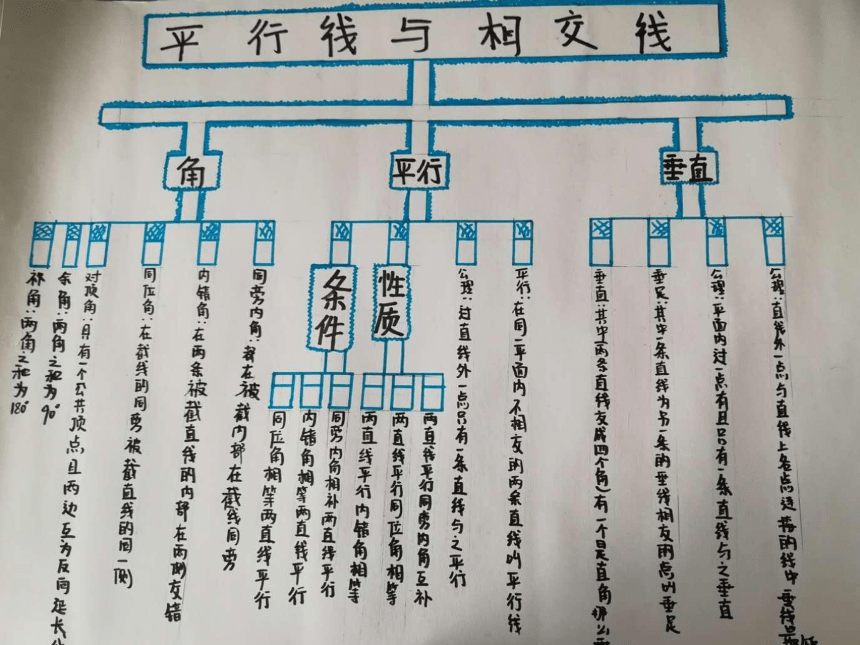 平行线与相交线
角
平行
垂直
补角:两角之和为180°
余角:两角之和为90°
对顶角:具有一个公共顶点且两边互为反向延长
同位角:在截线的同旁被截直线的同一侧
内错角:在两条被截直线的内部在两侧交错
同旁内角:都在被截内部在截线同旁
条件
性质
同位角相等两直线平行
内错角相等两直线平行
同旁内角相补两直线平行
两直线平行内错角相等
两直线平行同位角相等
两直线平行同旁内角互补
公理:过直线外一点只有一条直线与之平行
平行:在同一平面内不相交的两条直线叫平行线
垂直:其中两条直线交成四个角)有一个是直角
垂足:其中一条直线为另一条的垂线相交的点叫垂足
公理:平面内过一点有且只有一条直线与之垂直
公理:直线外一点与直线上各点连接的线中垂线